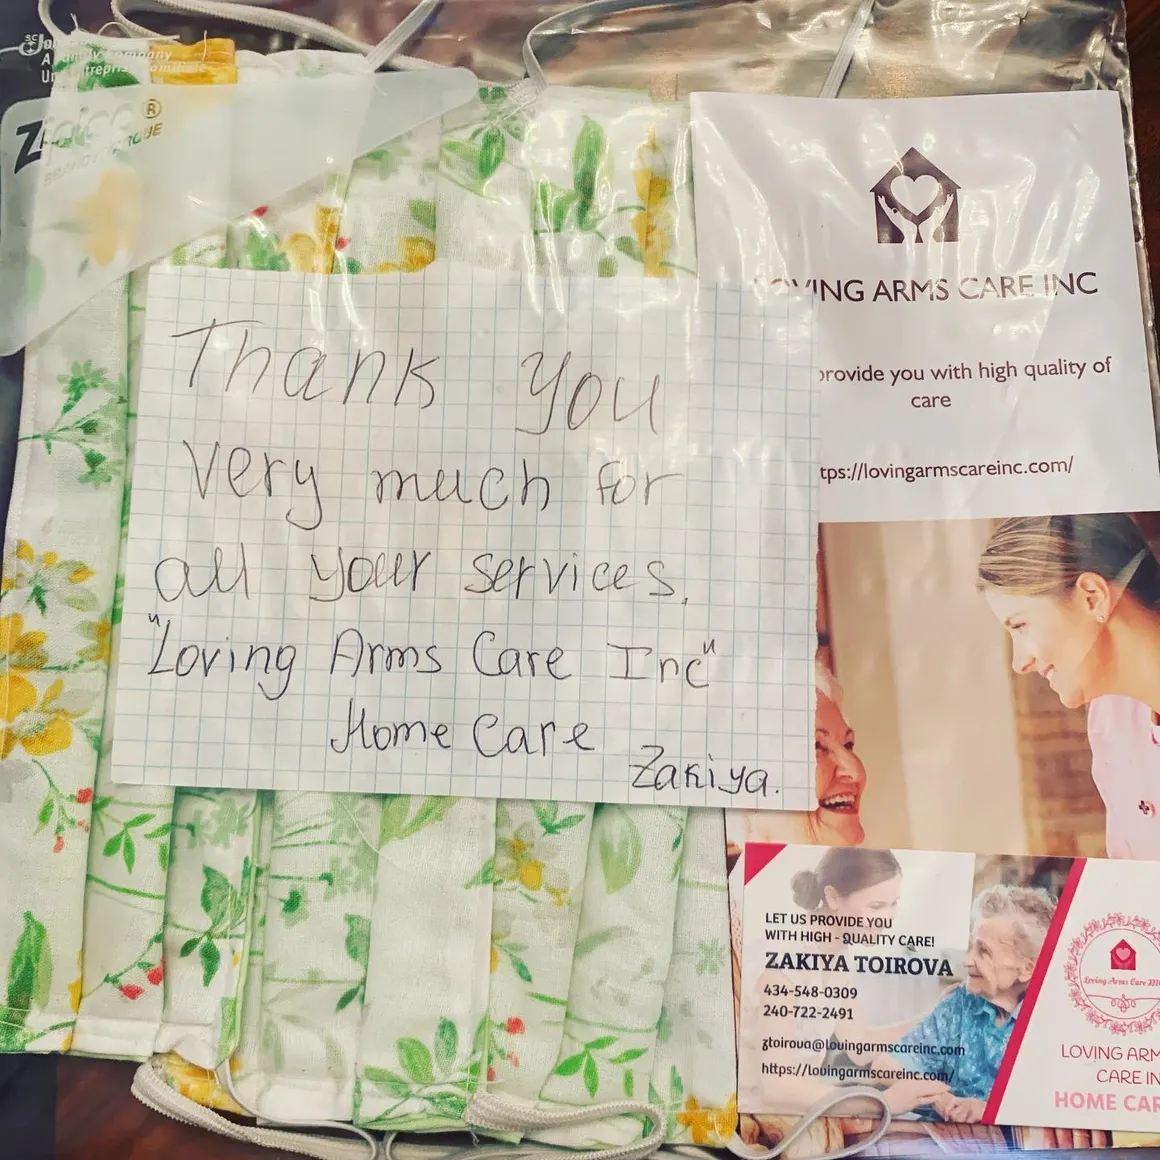 A Family Company
Ziploc®
Thank you
very much for
all your services.
"Loving Arms Care Inc"
Home Care
Zakiya.
LOVING ARMS CARE INC
provide you with high quality of
care
tps://lovingarmscareinc.com/
LET US PROVIDE YOU
WITH HIGH - QUALITY CARE!
ZAKIYA TOIROVA
434-548-0309
240-722-2491
ztoirova@lovingarmscareinc.com
https://lovingarmscareinc.com/
Loving Arms Care IN
LOVING ARM
CARE IN
HOME CAR